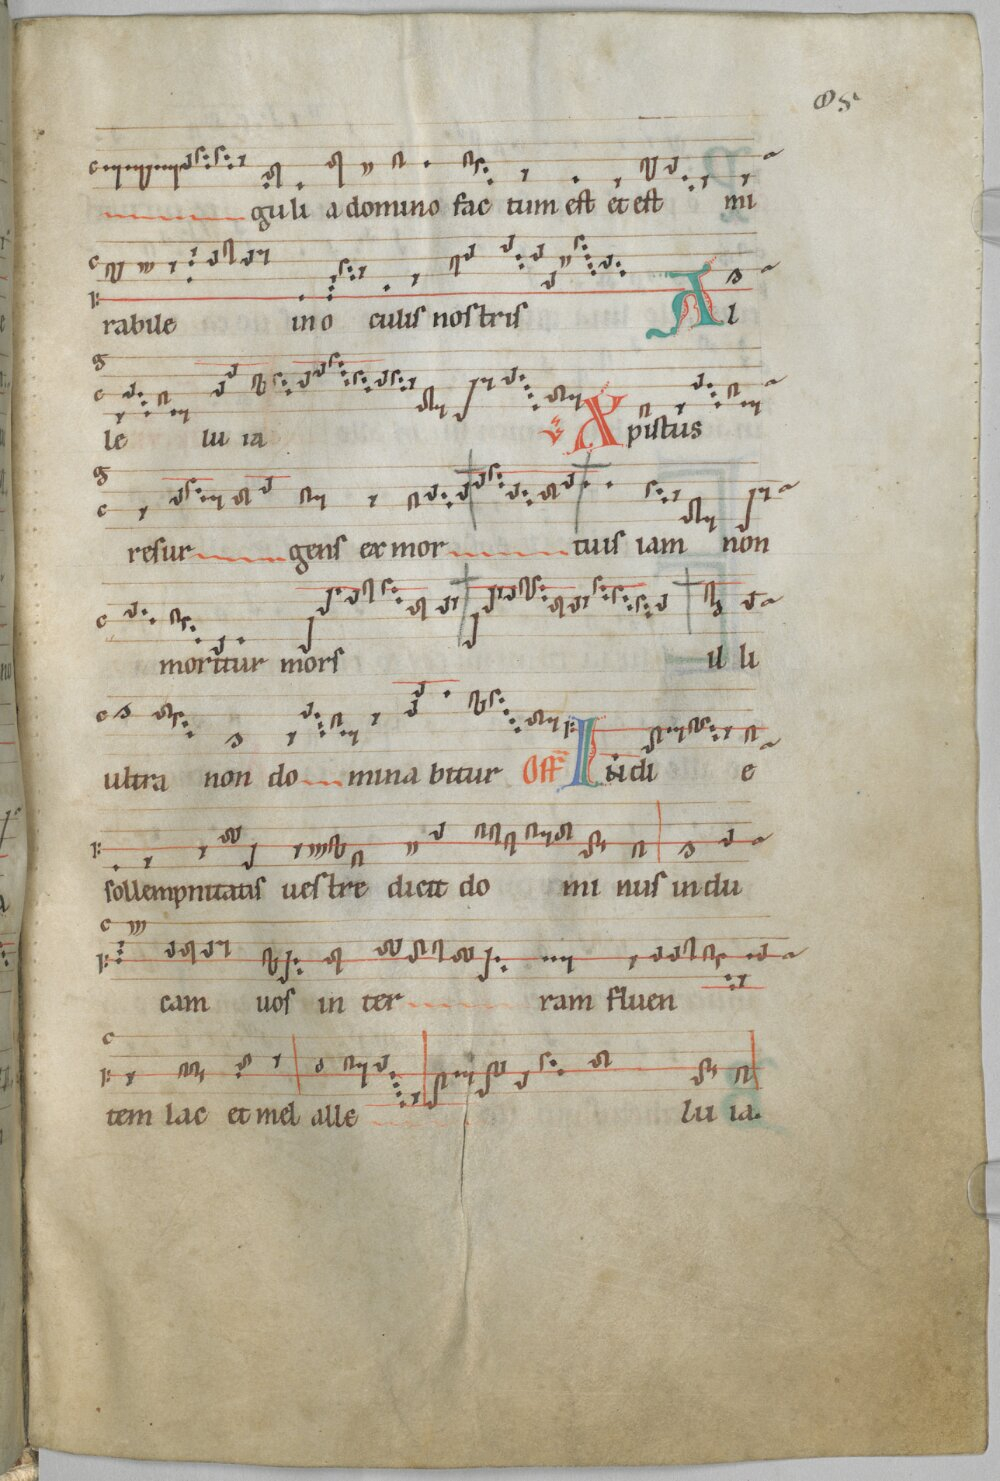 guli a domino fac tum est et est mi
rabile in o culis nostris Al
le lu ia ℣ Xpistus
resur gens ex mor tuis iam non
moritur mors il li
ultra non do mina bitur Off In di e
sollempnitatis uestre dicit do mi nus indu
cam uos in ter ram fluen
tem lac et mel alle lu ia.